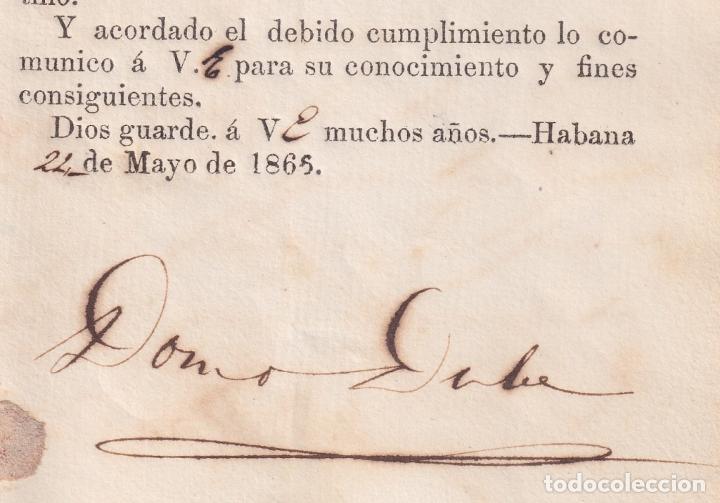 Y acordado el debido cumplimiento lo co-
munico á V.E. para su conocimiento y fines
consiguientes.
Dios guarde. á VE muchos años.—Habana
24 de Mayo de 1865.
Domo Dulce
todocoleccion